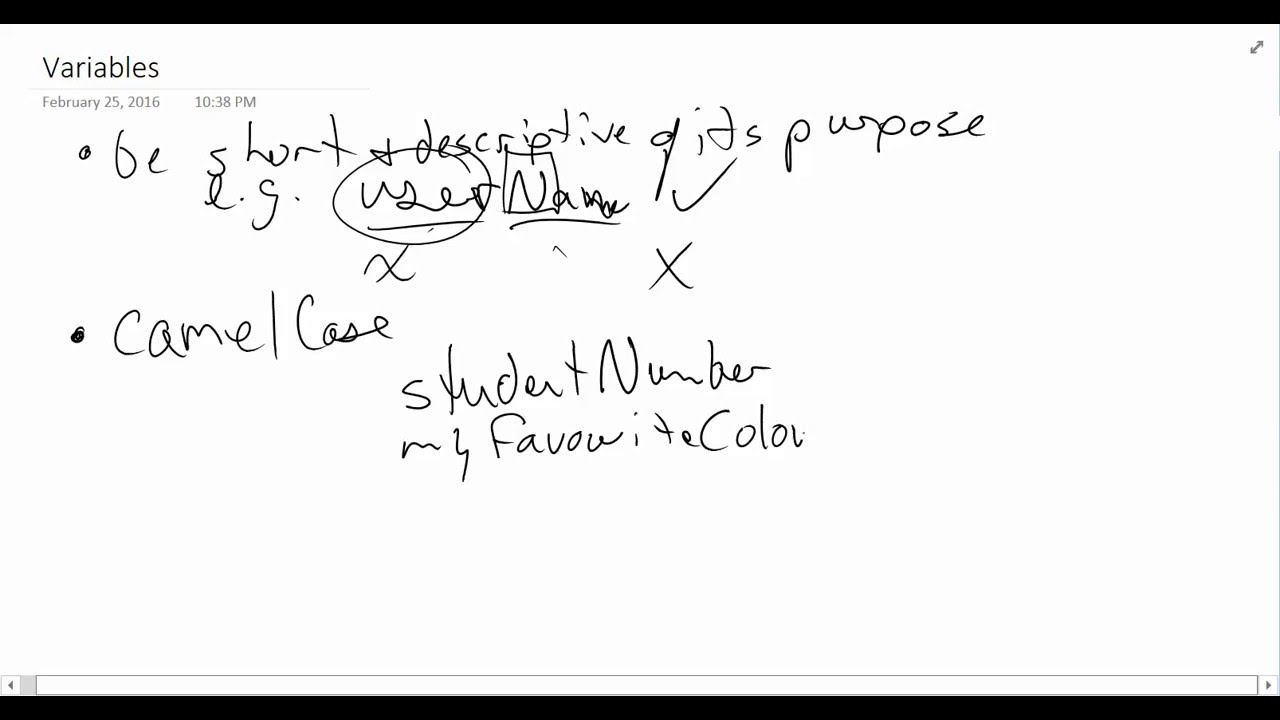 Variables
February 25, 2016 10:38 PM
• be short + descriptive of its purpose
e.g. userName ✓
x X
• camelCase
studentNumber
myFavouriteColou